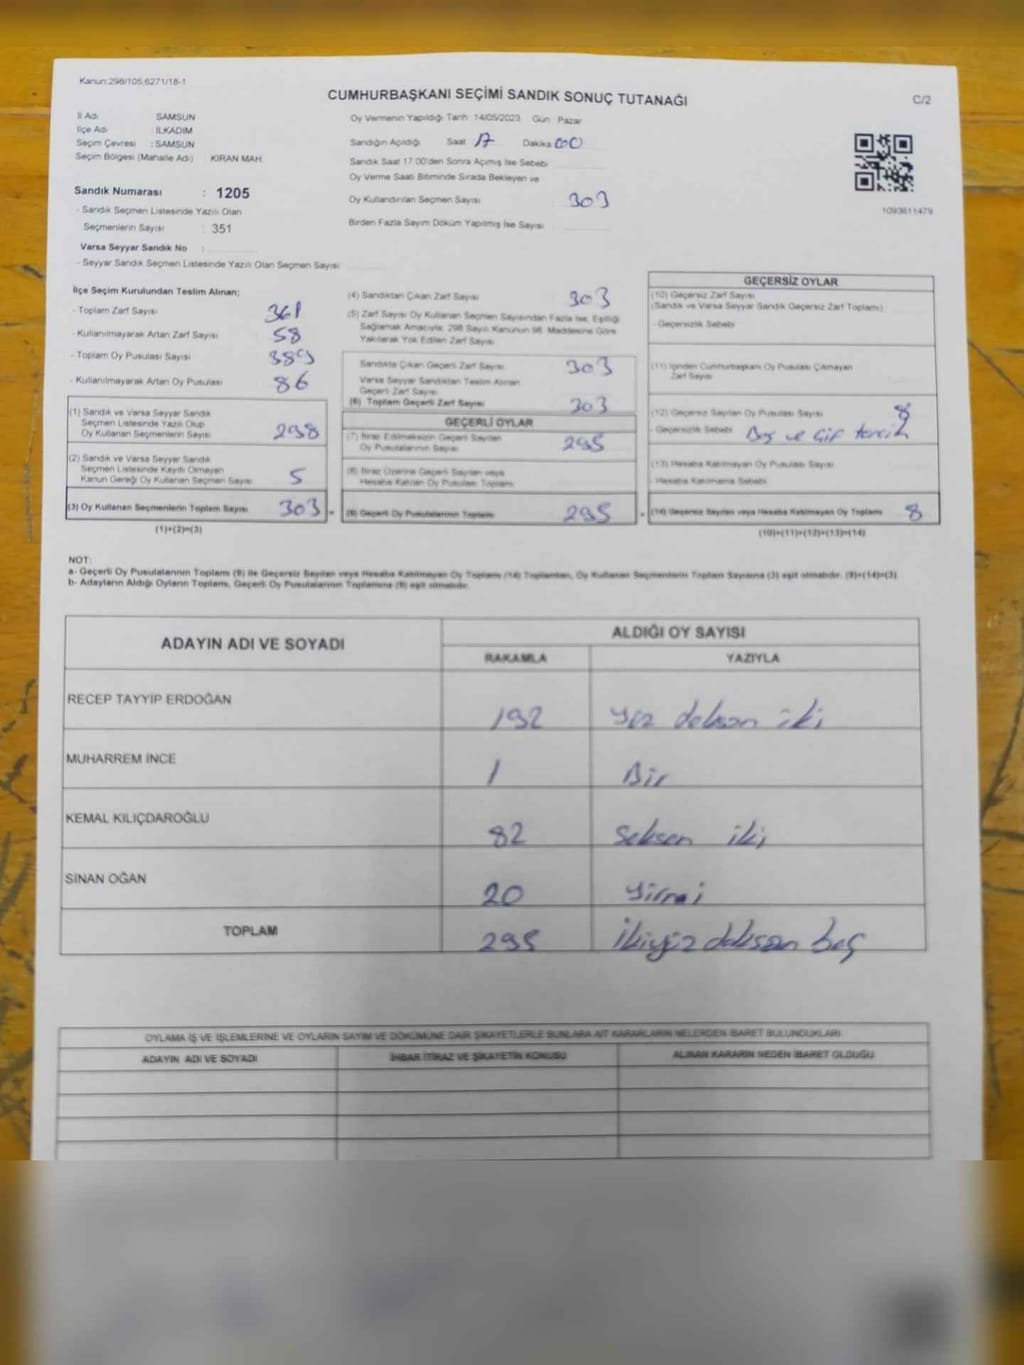 Kanun:298/105,6271/18-1
CUMHURBAŞKANI SEÇİMİ SANDIK SONUÇ TUTANAĞI
C/2
İl Adı SAMSUN
İlçe Adı İLKADIM
Seçim Çevresi : SAMSUN
Seçim Bölgesi (Mahalle Adı) KIRAN MAH.
Oy Vermenin Yapıldığı Tarih 14/05/2023 Gün: Pazar
Sandığın Açıldığı Saat 17 Dakika 00
Sandık Saat 17:00'den Sonra Açılmış İse Sebebi
Oy Verme Saati Bitiminde Sırada Bekleyen ve
Oy Kullandırılan Seçmen Sayısı 303
Birden Fazla Sayım Döküm Yapılmış İse Sayısı
1093611479
Sandık Numarası : 1205
- Sandık Seçmen Listesinde Yazılı Olan
Seçmenlerin Sayısı : 351
Varsa Seyyar Sandık No :
- Seyyar Sandık Seçmen Listesinde Yazılı Olan Seçmen Sayısı
İlçe Seçim Kurulundan Teslim Alınan;
- Toplam Zarf Sayısı 361
- Kullanılmayarak Artan Zarf Sayısı 58
- Toplam Oy Pusulası Sayısı
- Kullanılmayarak Artan Oy Pusulası 86
(1) Sandık ve Varsa Seyyar Sandık
Seçmen Listesinde Yazılı Olup
Oy Kullanan Seçmenlerin Sayısı 298
(2) Sandık ve Varsa Seyyar Sandık
Seçmen Listesinde Kayıtlı Olmayan
Kanun Gereği Oy Kullanan Seçmen Sayısı 5
(3) Oy Kullanan Seçmenlerin Toplam Sayısı 303 =
(1)+(2)=(3)
(4) Sandıktan Çıkan Zarf Sayısı 303
(5) Zarf Sayısı Oy Kullanan Seçmen Sayısından Fazla İse, Eşitliği
Sağlamak Amacıyla; 298 Sayılı Kanunun 98. Maddesine Göre
Yakılarak Yok Edilen Zarf Sayısı
Sandıkta Çıkan Geçerli Zarf Sayısı 303
Varsa Seyyar Sandıktan Teslim Alınan
Geçerli Zarf Sayısı
(6) Toplam Geçerli Zarf Sayısı 303
GEÇERLİ OYLAR
(7) İtiraz Edilmeksizin Geçerli Sayılan
Oy Pusulalarının Sayısı 295
(8) İtiraz Üzerine Geçerli Sayılan veya
Hesaba Katılan Oy Pusulası Toplamı
(9) Geçerli Oy Pusulalarının Toplamı 295 +
GEÇERSİZ OYLAR
(10) Geçersiz Zarf Sayısı
(Sandık ve Varsa Seyyar Sandık Geçersiz Zarf Toplamı)
- Geçersizlik Sebebi
(11) İçinden Cumhurbaşkanı Oy Pusulası Çıkmayan
Zarf Sayısı
(12) Geçersiz Sayılan Oy Pusulası Sayısı 8
- Geçersizlik Sebebi Boş ve Çif tercih
(13) Hesaba Katılmayan Oy Pusulası Sayısı
- Hesaba Katılmama Sebebi
(14) Geçersiz Sayılan veya Hesaba Katılmayan Oy Toplamı 8
(10)+(11)+(12)+(13)=(14)
NOT:
a- Geçerli Oy Pusulalarının Toplamı (9) ile Geçersiz Sayılan veya Hesaba Katılmayan Oy Toplamı (14) Toplamları, Oy Kullanan Seçmenlerin Toplam Sayısına (3) eşit olmalıdır. (9)+(14)=(3)
b- Adayların Aldığı Oyların Toplamı, Geçerli Oy Pusulalarının Toplamına (9) eşit olmalıdır.
ADAYIN ADI VE SOYADI ALDIĞI OY SAYISI
RAKAMLA YAZIYLA
RECEP TAYYİP ERDOĞAN 192 yüz doksan iki
MUHARREM İNCE 1 Bir
KEMAL KILIÇDAROĞLU 82 Seksen iki
SİNAN OĞAN 20 yirmi
TOPLAM 295 İkiyüz doksan beş
OYLAMA İŞ VE İŞLEMLERİNE VE OYLARIN SAYIM VE DÖKÜMÜNE DAİR ŞİKAYETLERLE BUNLARA AİT KARARLARIN NELERDEN İBARET BULUNDUKLARI
ADAYIN ADI VE SOYADI İHBAR İTİRAZ VE ŞİKAYETİN KONUSU ALINAN KARARIN NEDEN İBARET OLDUĞU